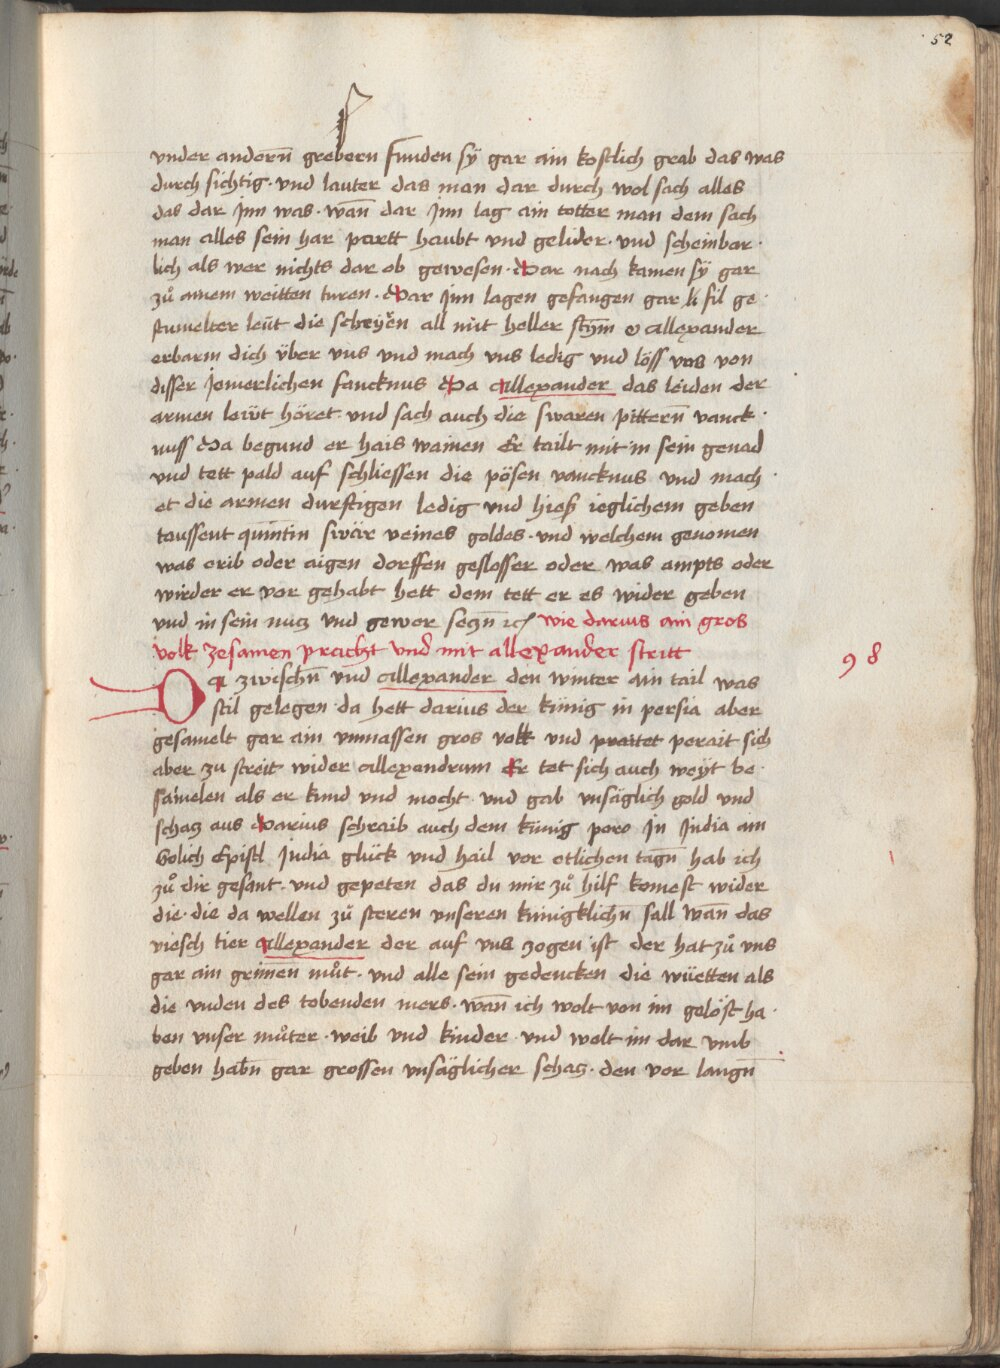 52
vnder anderñ grebern funden sÿ gar ain kostlich grab das was
durch sichtig · vnd lauter das man dar durch wol sach alles
das dar jnn was · wañ dar jnn lag ain totter man dem sach
man alles sein har partt haubt vnd gelider · vnd scheinbar ·
lich als wer nichts dar ob gewesen · Dar nach kamen sÿ gar
zů ainem weitten turen · Dar jnn lagen gefangen gar fil ge ·
stumelter leüt die scheÿen all mit heller stÿm o allexander
erbarm dich über vns vnd mach vns ledig vnd löss vns von
disser jemerlichen fancknus Da allexander das leiden der
armen leüt höret · vnd sach auch die swaren pitterñ vanck ·
nuss Da begund er hais wainen Er tailt mit in sein genad
vnd tett pald auf schliessen die pösen vancknus vnd mach ·
et die armen durftigen ledig vnd hieß ieglichem geben
taussent quintin swär reines goldes · vnd welchem genomen
was erib oder aigen dorffen geslosser oder was ampts oder
wirder er vor gehabt hett dem tett er es wider geben
vnd in sein nucz vnd gewer seczñ wie darius ain gros
volk zesamen pracht vnd mit allexander stritt
98
Da zwischñ vnd allexander den winter ain tail was
stil gelegen · da hett darius der künig in persia aber
gesamelt gar ain vnmassen gros volk vnd praitet perait sich
aber zu streit wider allexandrum Er tet sich auch weÿt be ·
samelen als er kund vnd mocht · vnd gab vnsäglich gold vnd
schacz aus Darius schraib auch dem künig poro jn jndia ain
solich Epistl jndia glück vnd hail vor etlichen tagñ hab ich
zů dir gesant · vnd gepeten das du mir zů hilf komest wider
die · die da wellen zů steren vnseren künigklichñ sall wañ das
viesch tier allexander der auf vns zogen ist der hat zů vns
gar ain grimen můt · vnd alle sein gedencken die wüetten als
die vnden des tobenden mers · wañ ich wolt von im gelöst ha ·
ben vnser můter · weib vnd kinder · vnd welt im dar vmb
geben habñ gar grossen vnsäglicher schacz · den vor langñ